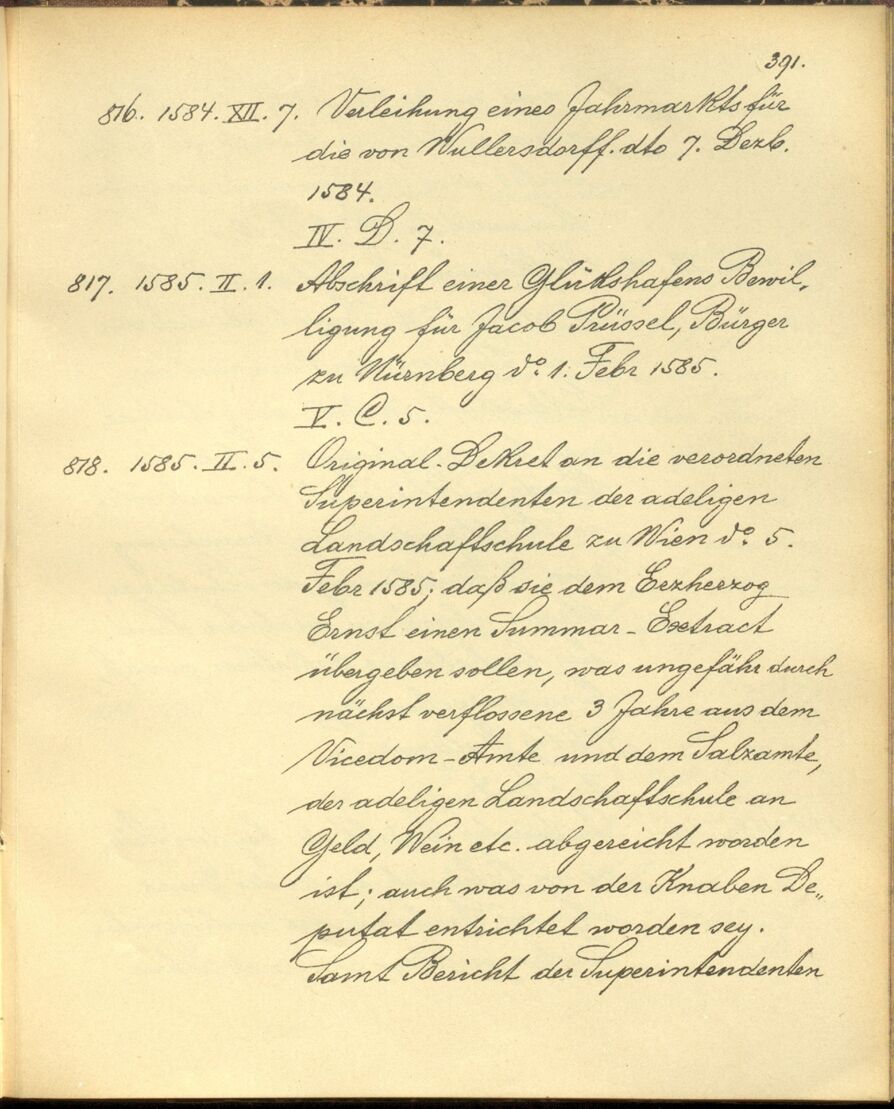 391.
816. 1584. XII. 7. Verleihung eines Jahrmarkts für
die von Wullersdorff. dto 7. Dezb.
1584.
IV. D. 7.
817. 1585. II. 1. Abschrift einer Glükshafens Bewil„
ligung für Jacob Prüssel, Bürger
zu Nürnberg do. 1. Febr 1585.
V. C. 5.
818. 1585. II. 5. Original-Dekret an die verordneten
Superintendenten der adeligen
Landschaftschule zu Wien do. 5.
Febr 1585; daß sie dem Erzherzog
Ernst einen Summar-Extract
übergeben sollen, was ungefähr durch
nächst verflossene 3 Jahre aus dem
Vicedom-Amte und dem Salzamte,
der adeligen Landschaftschule an
Geld, Wein etc. abgereicht worden
ist; auch was von der Knaben De„
putat entrichtet worden sey.
Samt Bericht der Superintendenten